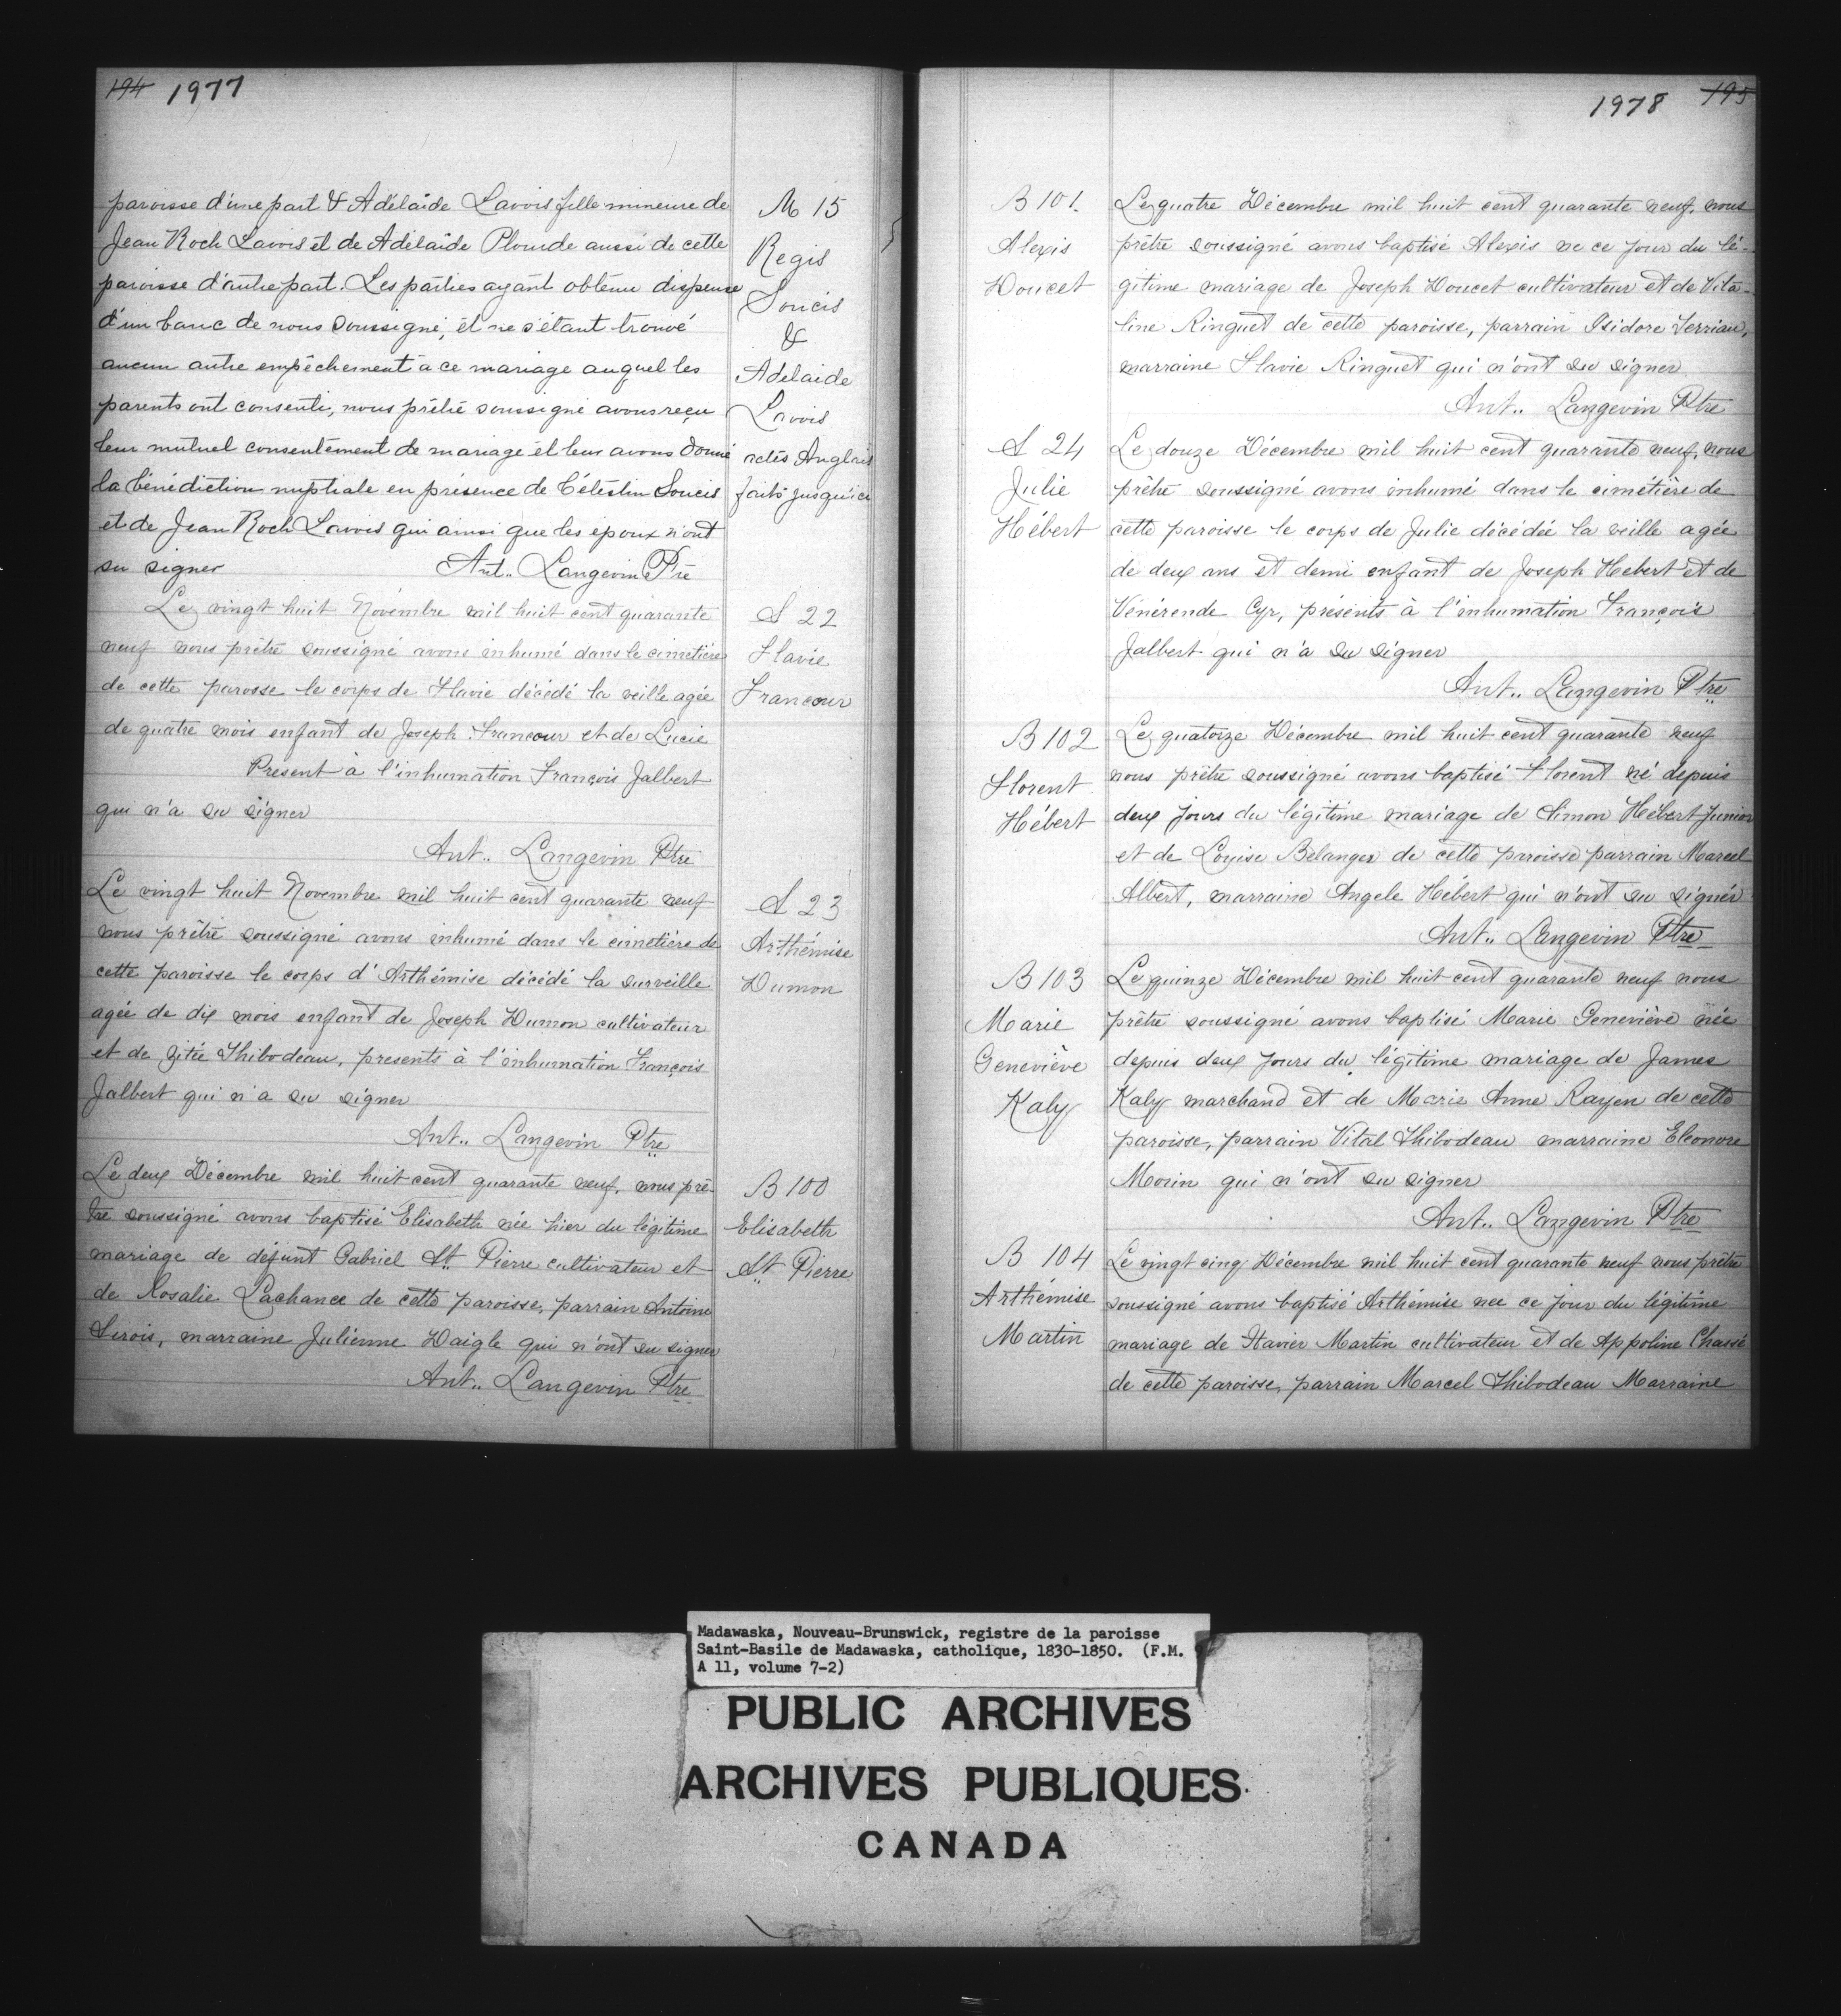 194 1977
paroisse d'une part & Adélaide Lavois fille mineure de
Jean Roch Lavois et de Adélaide Plourde aussi de cette
paroisse d'autre part. Les parties ayant obtenu dispense
d'un banc de nous soussigné, et ne s'étant trouvé
aucun autre empêchement à ce mariage auquel les
parents ont consenti, nous prêtre soussigné avons reçu
leur mutuel consentement de mariage et leur avons donné
la bénédiction nuptiale en présence de Célestin Soucis
et de Jean Roch Lavois qui ainsi que les époux n'ont
su signer Ant.. Langevin Ptre
M 15
Regis
Soucis
&
Adelaide
Lavois
actes Anglais
faits jusqu'ici
Le vingt huit Novembre mil huit cent quarante
neuf nous prêtre soussigné avons inhumé dans le cimetière
de cette parosse le corps de Flavie décédé la veille agée
de quatre mois enfant de Joseph Francour et de Lucie
Present à l'inhumation François Jalbert
qui n'a su signer
Ant.. Langevin Ptre
S 22
Flavie
Francour
Le vingt huit Novembre mil huit cent quarante neuf
nous prêtre soussigné avons inhumé dans le cimetière de
cette paroisse le corps d'Arthémise décédé la surveille
agée de dix mois enfant de Joseph Dumon cultivateur
et de Zitée Thibodeau, presents à l'inhumation François
Jalbert qui n'a su signer
Ant.. Langevin Ptre
S 23
Arthémise
Dumon
Le deux Décembre mil huit cent quarante neuf, nous prê-
tre soussigné avons baptisé Elisabeth née hier du légitime
mariage de défunt Gabriel St. Pierre cultivateur et
de Rosalie Lachance de cette paroisse, parrain Antoine
Sirois, marraine Julienne Daigle qui n'ont su signer
Ant.. Langevin Ptre
B 100
Elisabeth
St. Pierre
1978 195
B 101.
Alexis
Doucet
Le quatre Décembre mil huit cent quarante neuf, nous
prêtre soussigné avons baptisé Alexis ne ce jour du lé-
gitime mariage de Joseph Doucet cultivateur et de Vita-
line Ringuet de cette paroisse, parrain Isidore Terriau,
marraine Flavie Ringuet qui n'ont su signer
Ant.. Langevin Ptre
S 24
Julie
Hébert
Le douze Décembre mil huit cent quarante neuf, nous
prêtre soussigné avons inhumé dans le cimetière de
cette paroisse le corps de Julie décédée la veille agée
de deux ans et demi enfant de Joseph Hebert et de
Vénérende Cyr, présents à l'inhumation François
Jalbert qui n'a su signer
Ant.. Langevin Ptre
B 102
Florent
Hébert
Le quatorze Décembre mil huit cent quarante neuf
nous prêtre soussigné avons baptisé Florent né depuis
deux jours du légitime mariage de Simon Hébert Junior
et de Louise Bélanger de cette paroisse parrain Marcel
Albert, marraine Angele Hébert qui n'ont su signer
Ant.. Langevin Ptre
B 103
Marie
Geneviève
Kaly
Le quinze Décembre mil huit cent quarante neuf nous
prêtre soussigné avons baptisé Marie Geneviève née
depuis deux jours du légitime mariage de James
Kaly marchand et de Marie Anne Rayen de cette
paroisse, parrain Vital Thibodeau marraine Eleonore
Morin qui n'ont su signer
Ant.. Langevin Ptre
B 104
Arthémise
Martin
Le vingt cinq Décembre mil huit cent quarante neuf nous prêtre
soussigné avons baptisé Arthémise nee ce jour du légitime
mariage de Xavier Martin cultivateur et de Appoline Chassé
de cette paroisse, parrain Marcel Thibodeau Marraine
Madawaska, Nouveau-Brunswick, registre de la paroisse
Saint-Basile de Madawaska, catholique, 1830-1850. (F.M.
A 11, volume 7-2)
PUBLIC ARCHIVES
ARCHIVES PUBLIQUES
CANADA